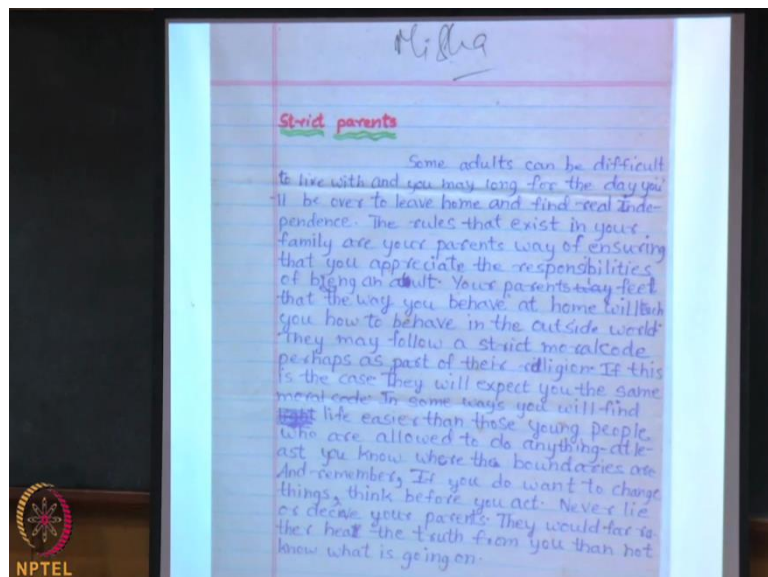 Misha
Strict parents
Some adults can be difficult
to live with and you may long for the day you'
ll be over to leave home and find real Inde-
pendence. The rules that exist in your
family are your parents way of ensuring
that you appreciate the responsibilities
of bieng an adult. Your parents may feel
that the way you behave at home will tech
you how to behave in the outside world.
They may follow a strict moralcode
perhaps as part of their riligion. If this
is the case They will expect you the same
moral code. In some ways you will find
life easier than those young people
who are allowed to do anything-atle-
ast you know where the boundaries are
And remember, If you do want to change
things, think before you act. Never lie
or decive your parents. They would far ra-
ther hear the truth from you than not
know what is going on.
NPTEL